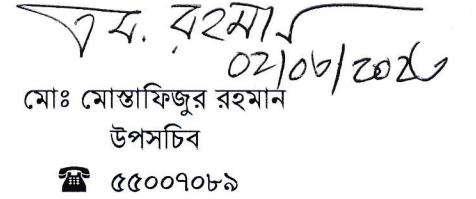 ম. রহমান
০২/০৬/২০২৬
মোঃ মোস্তাফিজুর রহমান
উপসচিব
☎ ৫৫০০৭০৮৯